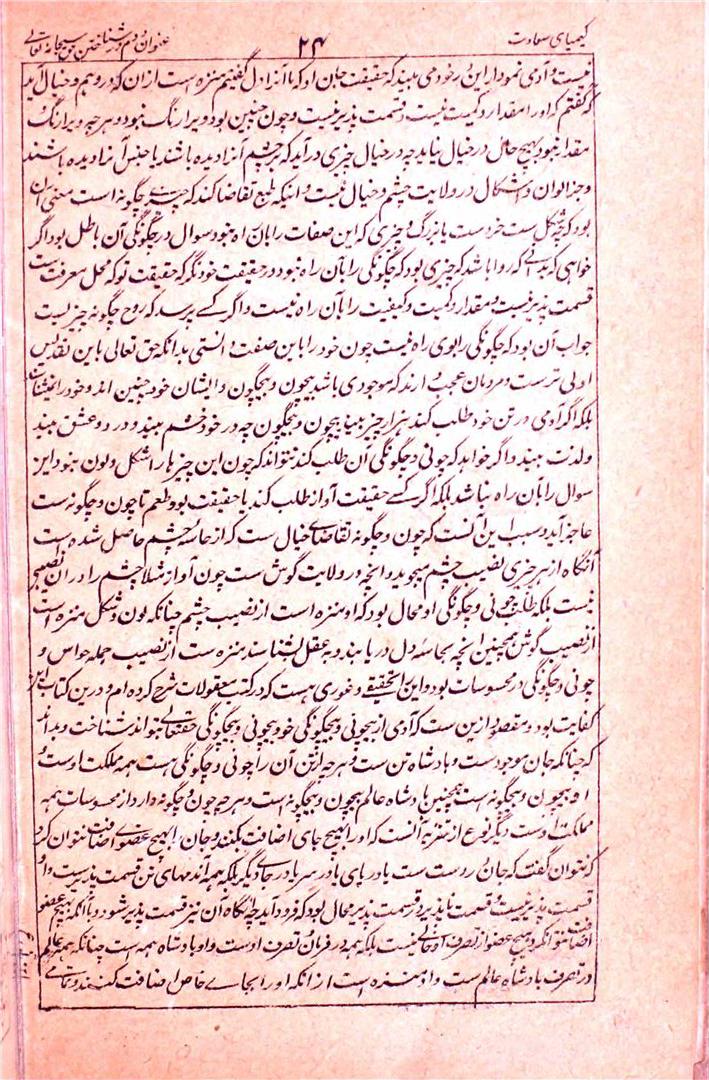 کیمیای سعادت
۲۴
عنوان دوم در شناختن حق سبحانه تعالی
نیست و آدمی نمودار این در خود می بیند که حقیقت جان او که ما آنرا دل گفتیم منزه است از ان که در وهم و خیال آید
که گفتم که او را مقدار و کمیت نیست و قسمت پذیر نیست و چون چنین بود ویرا رنگ نبود و هرچه ویرا رنگ و
مقدار نبود بهیچ حال در خیال نیاید چه در خیال چیزی در آید که چشم آنرا دیده باشند یا جنس آنرا دیده باشند
و جز الوان و اشکال در ولایت چشم و خیال نیست و اینکه طبع تقاضا کند که چیزے چگونه است معنی آن
بود که چه شکل ست خرد ست یا بزرگ و چیزی که این صفات را بآن راه نبود سوال در چگونگی آن باطل بود اگر
خواهی که بدانی که روا باشد که چیزی بود که چگونگی را بآن راه نبود در حقیقت خود نگر که حقیقت تو که محل معرفت ست
قسمت پذیر نیست و مقدار و کمیت و کیفیت را بآن راه نیست و اگر کسے پرسد که روح چگونه چیز نیست
جواب آن بود که چگونگی را بوی راه نیست چون خود را باین صفت دانستی بدانکه حق تعالی باین تقدیس
اولی تر ست و مردمان عجب دارند که موجودی باشد بیچون و بیچگون و ایشان خود چنین اند و خود را نشناسند
بلکه اگر آدمی در تن خود طلب کند هزار چیز بیند بیچون و بیچگون چه در خود خشم بیند و درد و عشق بیند
و لذت بیند و اگر خواهد که چونی و چگونگی آن طلب کند نتواند که چون این چیزها را شکل و لون نبود این
سوال را بآن راه نباشد بلکه اگر کسے حقیقت آواز طلب کند یا حقیقت بو و طعم تا چون و چگونه ست
عاجز آید و سبب این آنست که چون و چگونه تقاضای خیال ست که از حاسه چشم حاصل شده است
آنگاه از هر چیزی نصیب چشم میجوید و آنچه در ولایت گوش ست چون آواز مثلا چشم را در ان هیچ نصیب
نیست بلکه طلب چونی و چگونگی او محال بود که او منزه است از نصیب چشم چنانکه لون و شکل منزه است
از نصیب گوش همچنین آنچه بحاسۀ دل در یابند و به عقل بشناسند منزه ست از نصیب جمله حواس و
چونی و چگونگی در محسوسات بود و این را تحقیقے و غوری هست که در کتب معقولات شرح کرده ام و درین کتاب این
کفایت بود و مقصود ازین ست که آدمی از بیچونی و بیچگونگی خود بیچونی و بیچگونگی حقتعالی بتواند شناخت و بداند
که چنانکه جان موجود ست و بادشاه تن ست و هرچه از تن آن را چونی و چگونگی هست همه مملکت اوست و
او بیچون و بیچگونه است همچنین بادشاه عالم بیچون و بیچگونه است و هرچه چون و چگونه دارد از محسوسات همه
مملکت اوست دیگر نوع از تنزیه آنست که او را بهیچ جای اضافت نکنند و جان را بهیچ عضوے اضافت نتوان کرد
که نتوان گفت که جان در دست ست یا در پای یا در سر یا در جاے دیگر بلکه همه اندامهای تن قسمت پذیر ست و او
قسمت پذیر نیست و قسمت ناپذیر در قسمت پذیر محال بود که فرود آید چه آنگاه آن نیز قسمت پذیر شود و با آنکه بهیچ عضو
اضافت نتوان کرد هیچ عضو از تصرف او خالی نیست بلکه همه در فرمان و تصرف اوست و او بادشاه همه است چنانکه همه عالم
در تصرف بادشاه عالم ست و او منزه است از انکه او را بجاے خاص اضافت کنند و تمامی